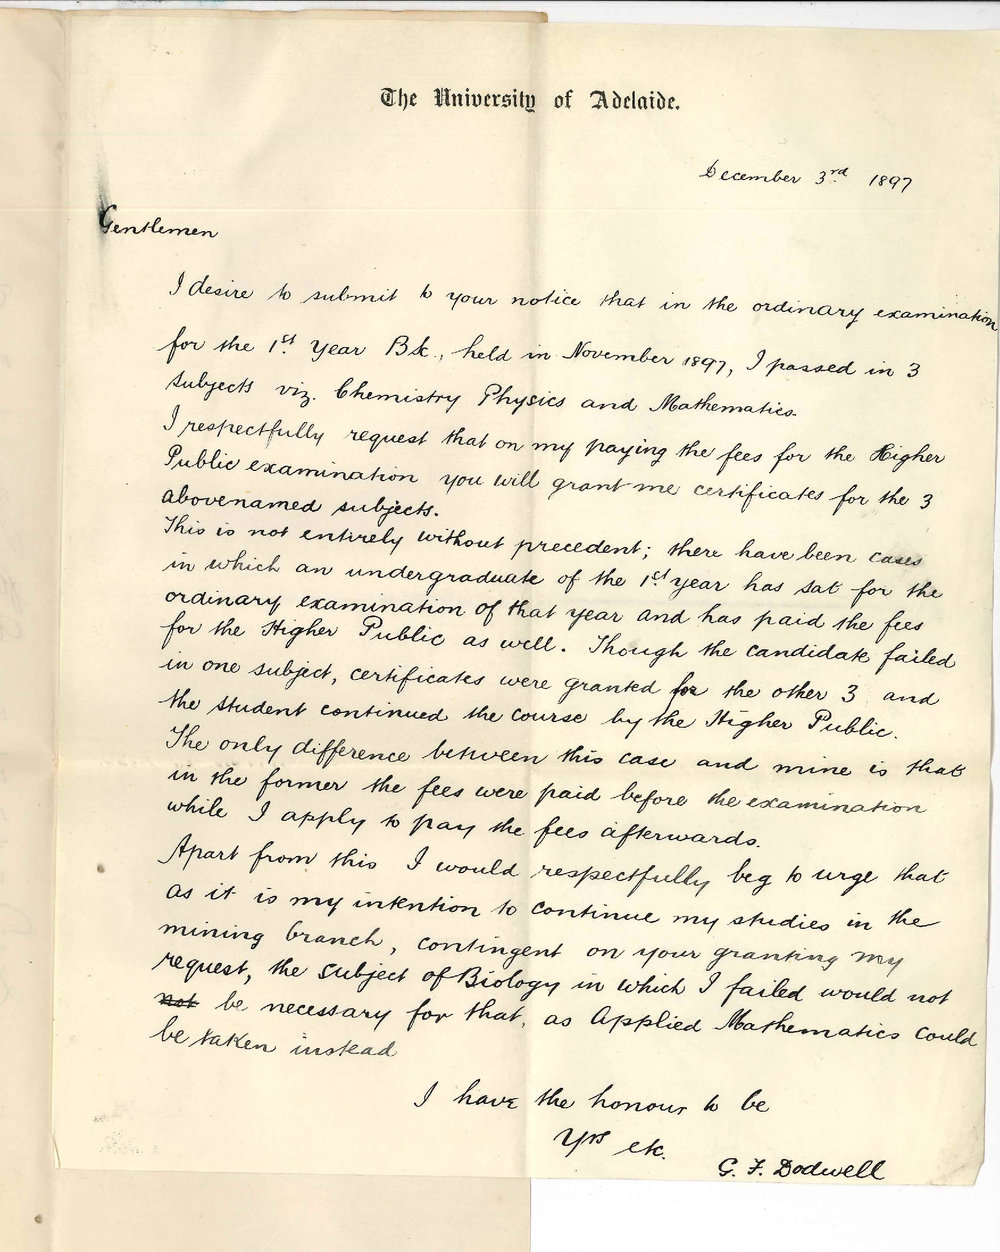 The University of Adelaide.
December 3rd 1897
Gentlemen
I desire to submit to your notice that in the ordinary examination
for the 1st. Year B.Sc., held in November 1897, I passed in 3
subjects viz. Chemistry Physics and Mathematics.
I respectfully request that on my paying the fees for the Higher
Public examination you will grant me certificates for the 3
abovenamed subjects.
This is not entirely without precedent; there have been cases
in which an undergraduate of the 1st. year has sat for the
ordinary examination of that year and has paid the fees
for the Higher Public as well. Though the candidate failed
in one subject, certificates were granted for the other 3 and
the student continued the course by the Higher Public.
The only difference between this case and mine is that
in the former the fees were paid before the examination
while I apply to pay the fees afterwards.
Apart from this I would respectfully beg to urge that
as it is my intention to continue my studies in the
mining branch, contingent on your granting my
request, the subject of Biology in which I failed would not
not be necessary for that, as Applied Mathematics could
be taken instead
I have the honour to be
Yrs etc.
G. F. Dodwell